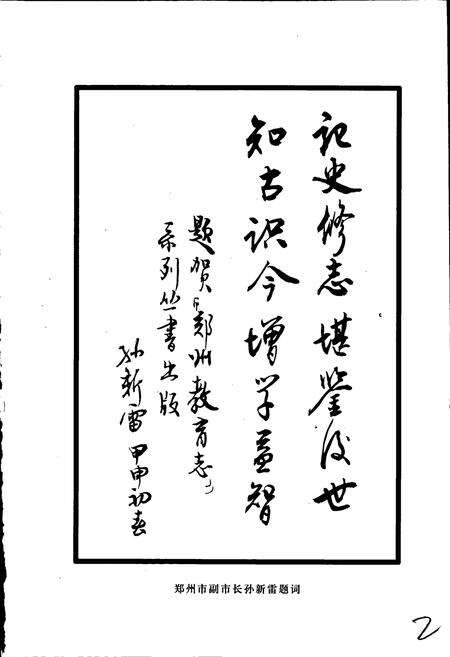 记史修志堪鉴后世
知古识今增学益智
题贺《郑州教育志》
系列丛书出版
孙新雷 甲申初春
郑州市副市长孙新雷题词
2